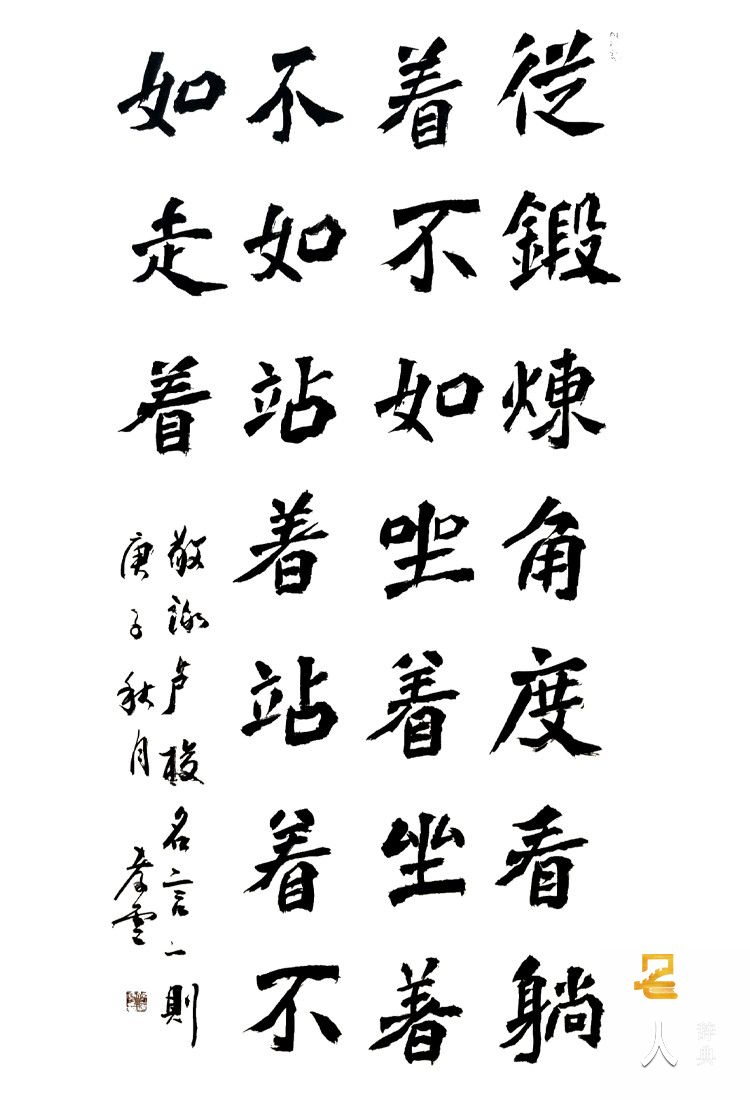 從鍛煉角度看躺
着不如坐着坐着
不如站着站着不
如走着
敬錄卢 名言一則
庚子秋月 雲
名人
辞典